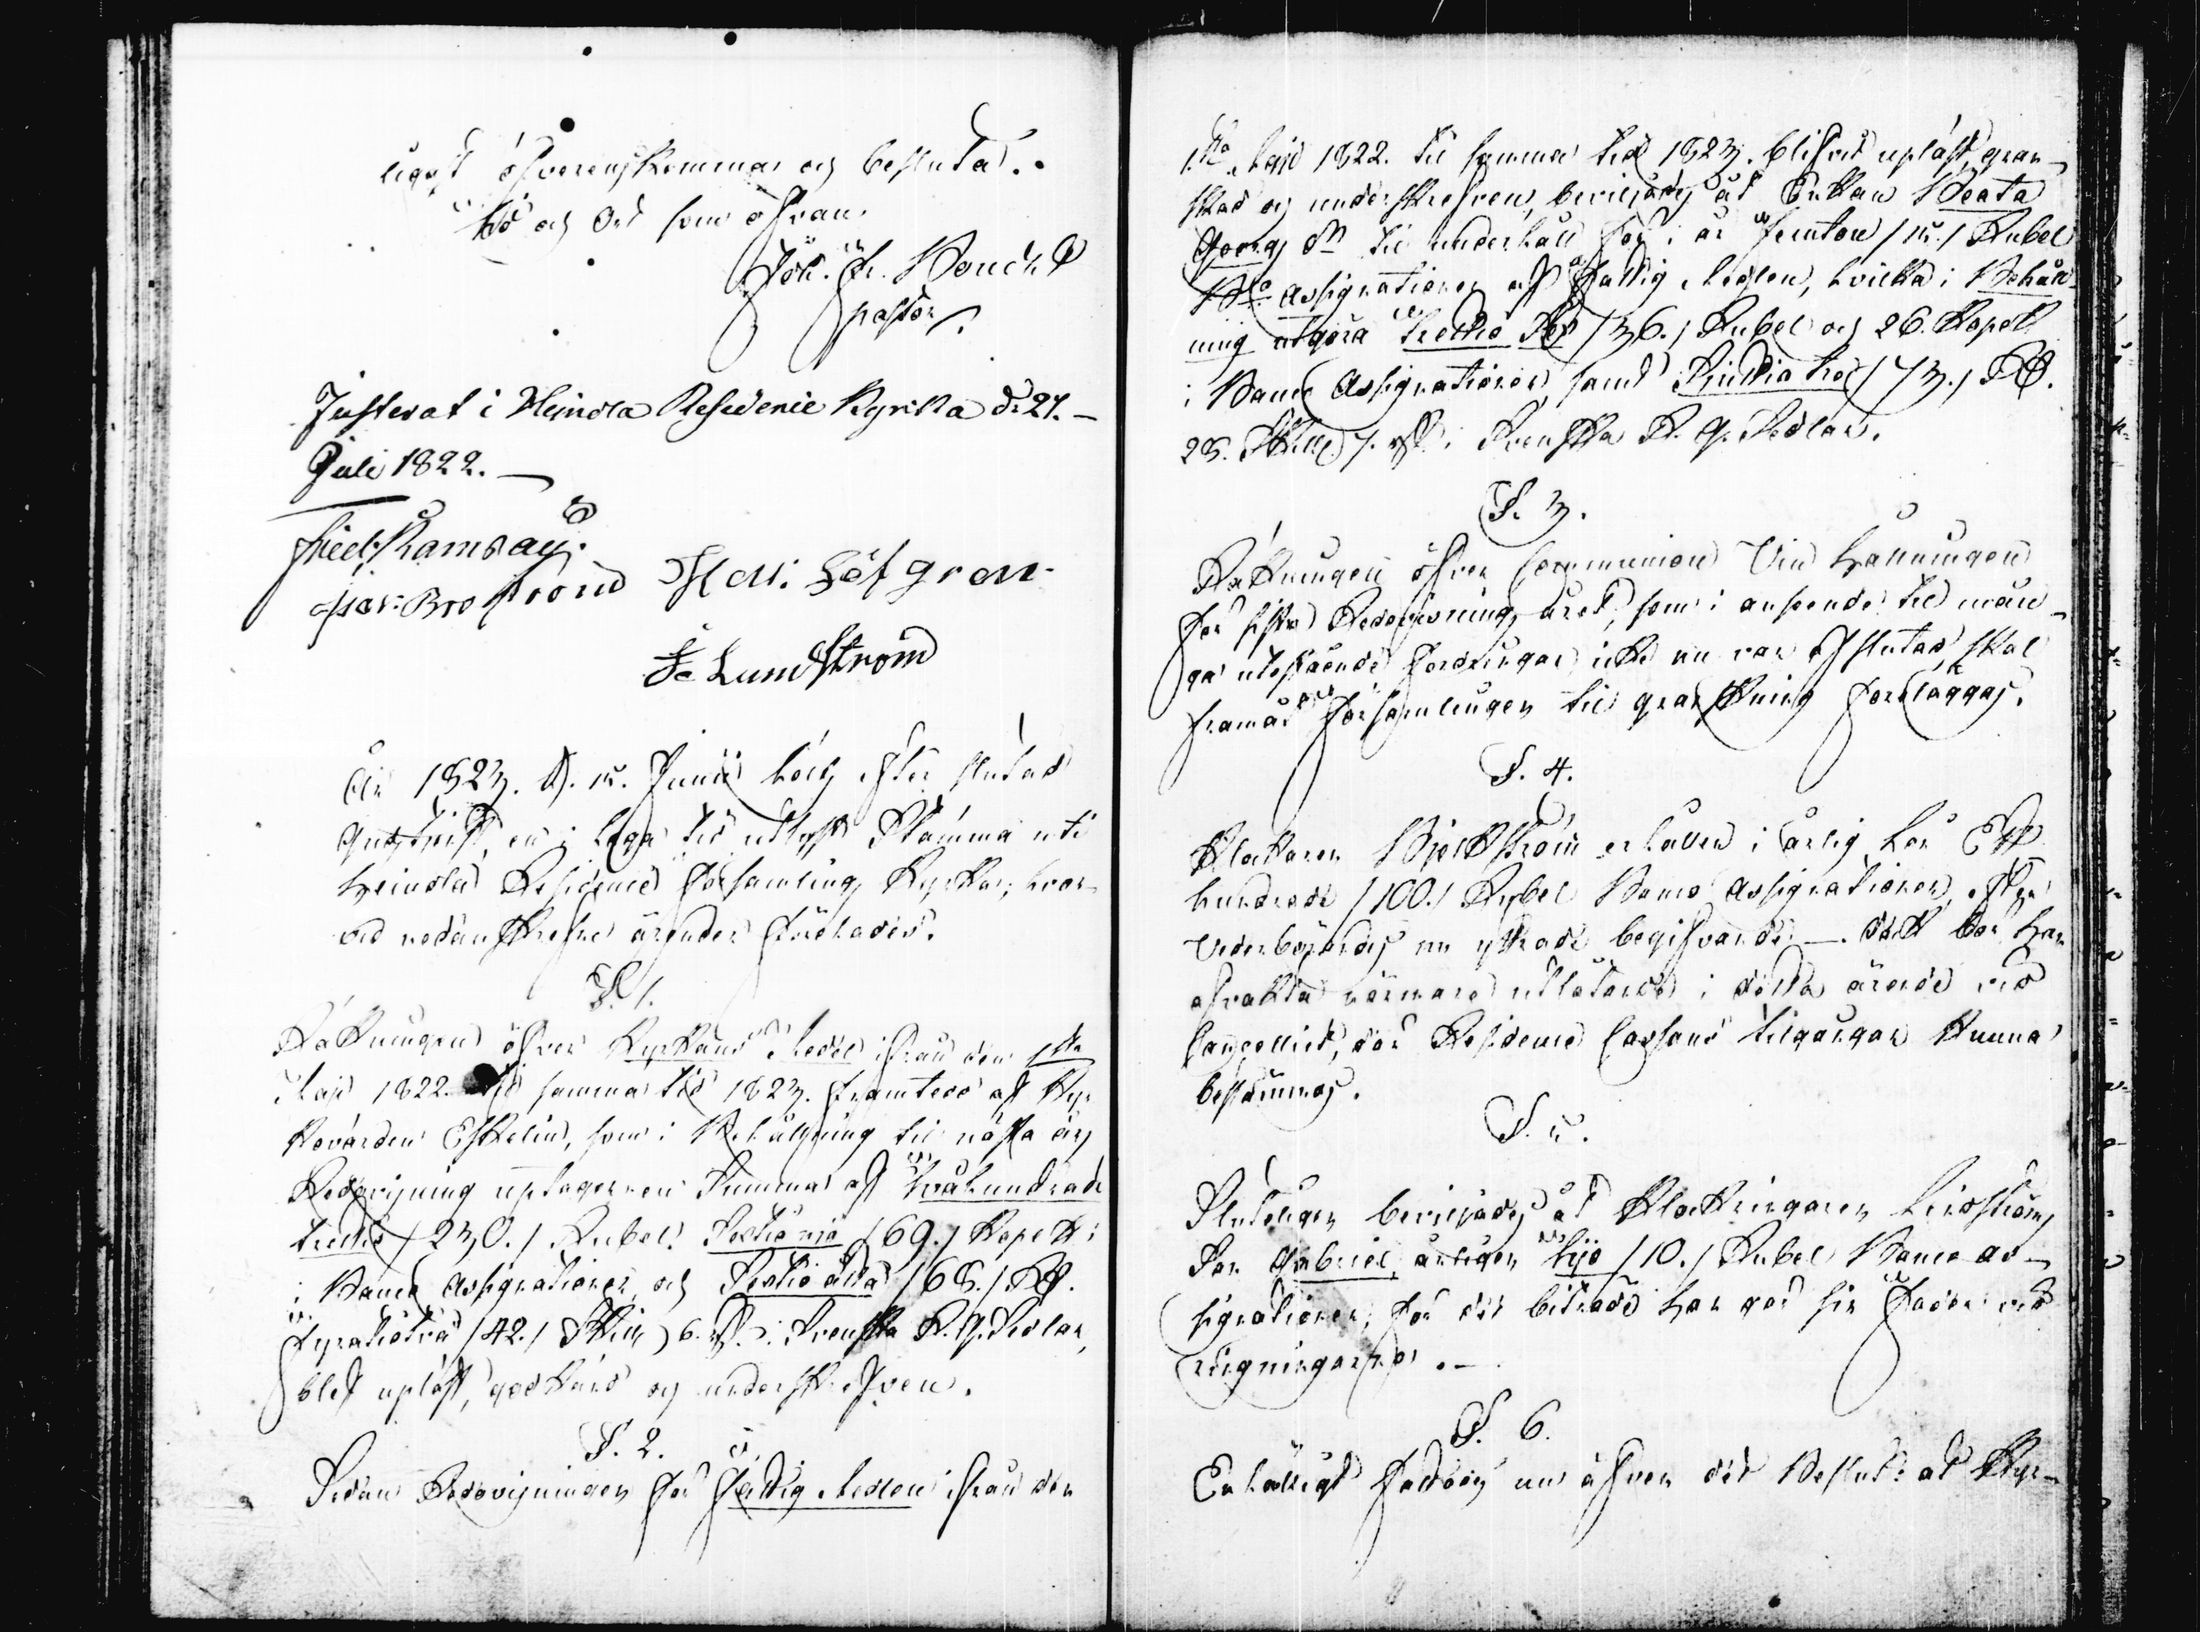 ligast öfverenskommas och beslutas.
Tid och Ort som ofvan
Joh. Fr.
Pastor.
Justerat i Heinola Residence Kyrka d. 21.
Julii 1822.
Fried: Ramsay.
Brostrom Hen: Löfgren
Lundstrom
År 1823. d. 15. Junii hölls efter slutad
Gudstjenst, en i laga tid utlyst Stämma uti
Heinola Residence Församlings Kyrka, hvar-
vid nedanskrefne ärender företades.
§. 1.
Räkningen öfver Kyrkans Medel ifrån den 1sta
Maji 1822 til samma tid 1823. framtedd af Kyr-
kovärden Eskelin, som i Behållning til nästa års
Redovisning uptager en Summa af Tvåhundrade
trettio /230./ Rubel Sextio nio /69./ Kopek:
i Banco Assignationer och Sextio åtta /68./ RD.
Fyratiotvå /42./ Skill. 6. rst. i Svenska R. G. Sedlar,
blef upläst, godkänd och underskrefven.
§. 2.
Sedan Redovisningen för Fattig Medlen ifrån den
1sta Maji 1822. til samma tid 1823. blifvit upläst, gran-
skad och underskrefven, beviljades åt Enkan Beata
Georgs Dr til underhåll för i år Femton /15./ Rubel
Bco Assignationer af Fattig Medlen, hvilka i Behåll-
ning utgöra Trettio Sex /36./ Rubel och 26. Kopek
i Banco Assignationer, samt Sjuttio tre /73./ RD.
28. Skill. 7. rst. i Svenska R. G. Sedlar.
§. 3.
Räkningen öfver Communion Vin Hållningen
för sista Redovisnings året, som i anseende til mån-
ga utestående fordringar icke nu var afslutad, skal
framdeles Församlingen til granskning föreläggas.
§. 4.
Klockaren Björkström erhåller i årlig Lön Ett
hundrade /100./ Rubel Banco Assignationer, efter
Vederbörandes nu yttrade begifvande. - dock bör han
afvakta närmare utlåtande i detta ärende vid
Cancelliet, då Residence Cassans tilgångar kunna
bestämmas.
§. 5.
Sluteligen beviljades åt Klockringaren Lindströms
Son Gabriel, årligen Tijo /10./ Rubel Banco As-
signationer, för det biträde han gör sin Fader vid
ringningarna. -
§. 6.
Enhälligt fattades nu äfven det Beslut: at Kyr-